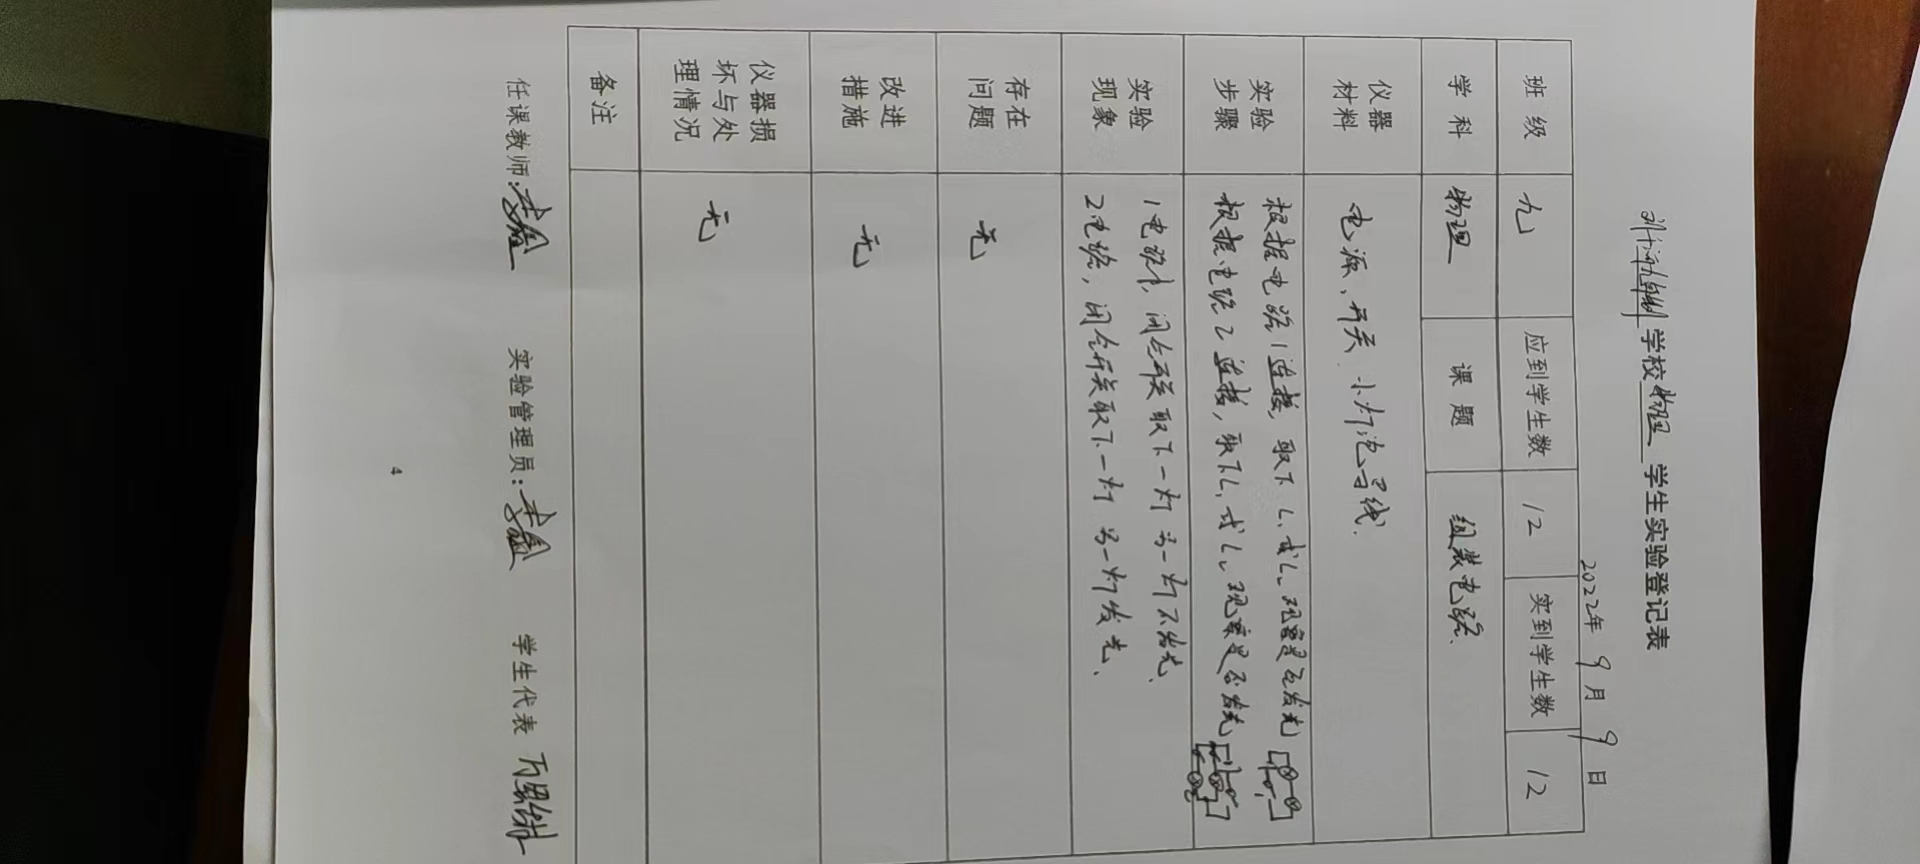 学校物理 学生实验登记表
2022年9月9日
班级 九 应到学生数 12 实到学生数 12
学科 物理 课题 组装电路.
仪器材料 电源、开关、小灯泡导线.
实验步骤
根据电路1连接,取下L1或L2现察是否发光
根据电路2连接,取下L1或L2现察是否发光
实验现象
1电路中,闭合开关取下一灯另一灯不发光.
2电路,闭合开关取下一灯另一灯发光.
存在问题 无
改进措施 无
仪器损坏与处理情况 无
备注
任课教师: 实验管理员: 学生代表
4